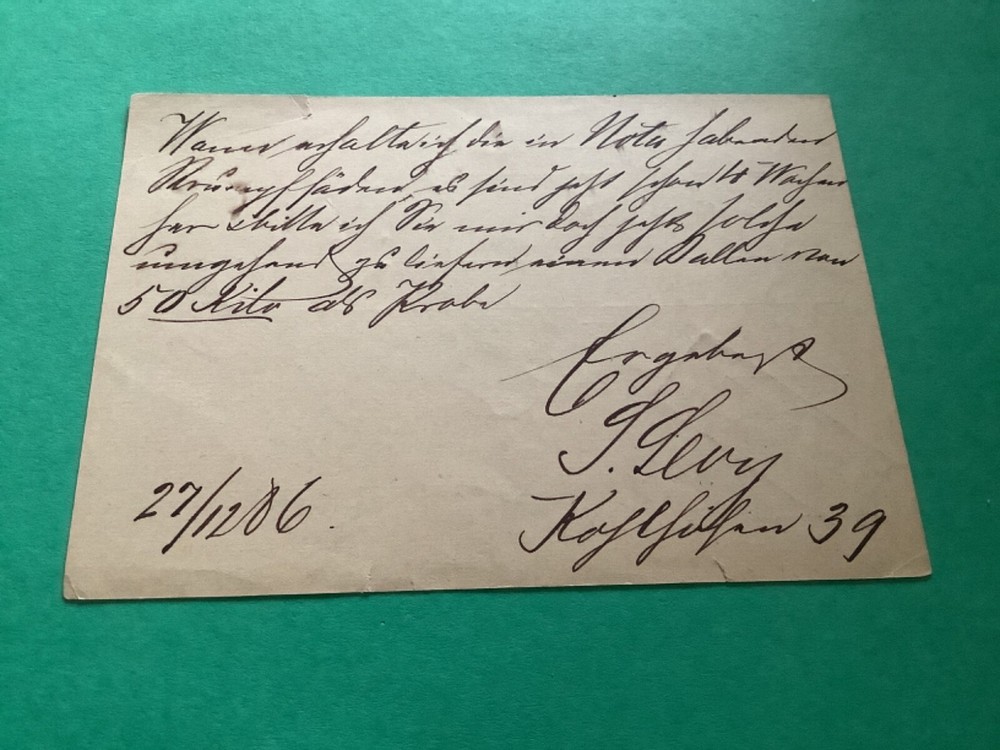 Wann erhalte ich die in Nota habenden
Strumpffäden, es sind jetzt schon 4 Wochen
her & bitte ich Sie mir doch jetzt solche
umgehend zu liefern einen Ballen von
50 Kilo als Probe
Ergebenst
S. Levy
Kohlhöfen 39
27/12 86.